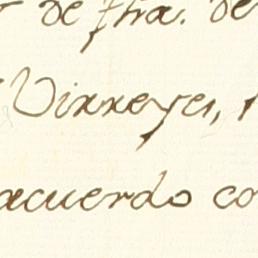 de fha. de
Virreyes,
acuerdo co